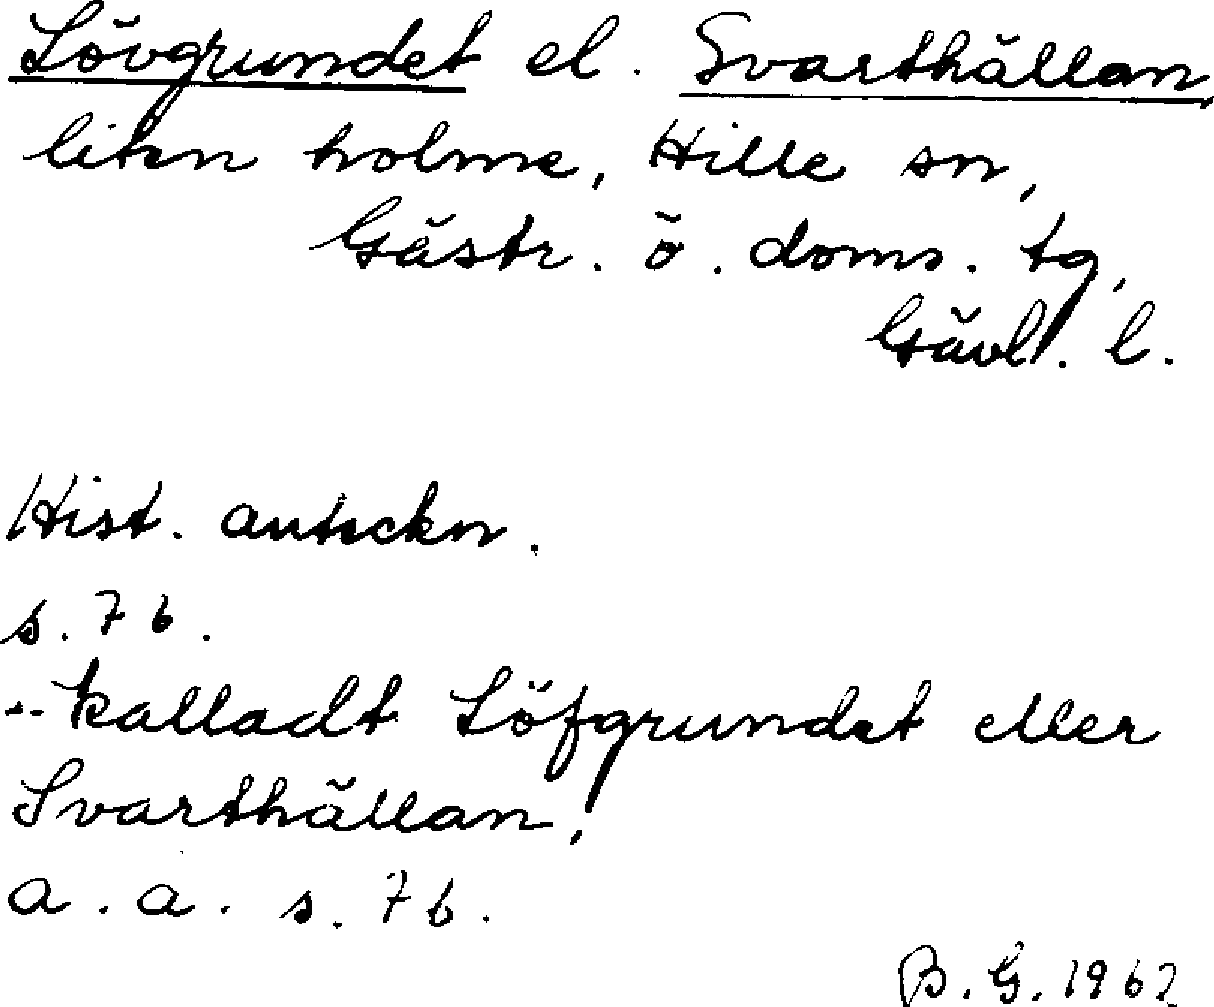 Lövgrundet el. Svarthällan
liten holme, Hille sn,
Gästr. ö. doms. tg,
Gävl. l.
Hist. anteckn.
s. 76.
..kalladt Löfgrundet eller
Svarthällan,
a. a. s. 76.
B. G. 1962